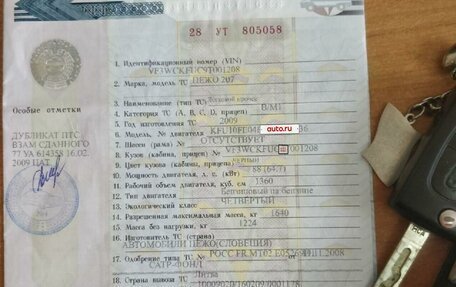 28 УТ 805058
1. Идентификационный номер (VIN)
VF3WCKFUC9T001208
2. Марка, модель ТС ПЕЖО 207
3. Наименование (тип ТС)
4. Категория ТС (A, B, C, D, прицеп) B/M1
5. Год изготовления ТС 2009
6. Модель, № двигателя KFU10FE04R auto.ru 86
7. Шасси (рама) № ОТСУТСТВУЕТ
8. Кузов (кабина, прицеп) № VF3WCKFUC 001208
9. Цвет кузова (кабины, прицепа) ЧЕРНЫЙ
10. Мощность двигателя, л. с. (кВт) 88 (64.7)
11. Рабочий объем двигателя, куб. см 1360
12. Тип двигателя Бензиновый на бензине
13. Экологический класс ЧЕТВЕРТЫЙ
14. Разрешенная максимальная масса, кг 1640
15. Масса без нагрузки, кг 1224
16. Изготовитель ТС (страна)
АВТОМОБИЛИ ПЕЖО(СЛОВЕНИЯ)
17. Одобрение типа ТС № РОСС FR.MT02. 11.2008
САТР-ФОНД
18. Страна вывоза ТС Литва
Особые отметки
ДУБЛИКАТ ПТС
ВЗАМ СДАННОГО
77 УА 614358 16.02.
2009 ЦАТ